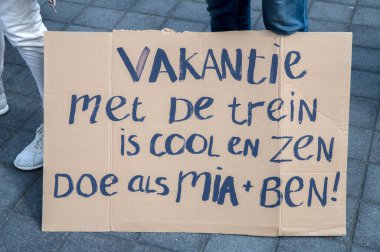 VAKANTIE
met De trein
is COOL en ZEN
DOE als MIA + BEN!